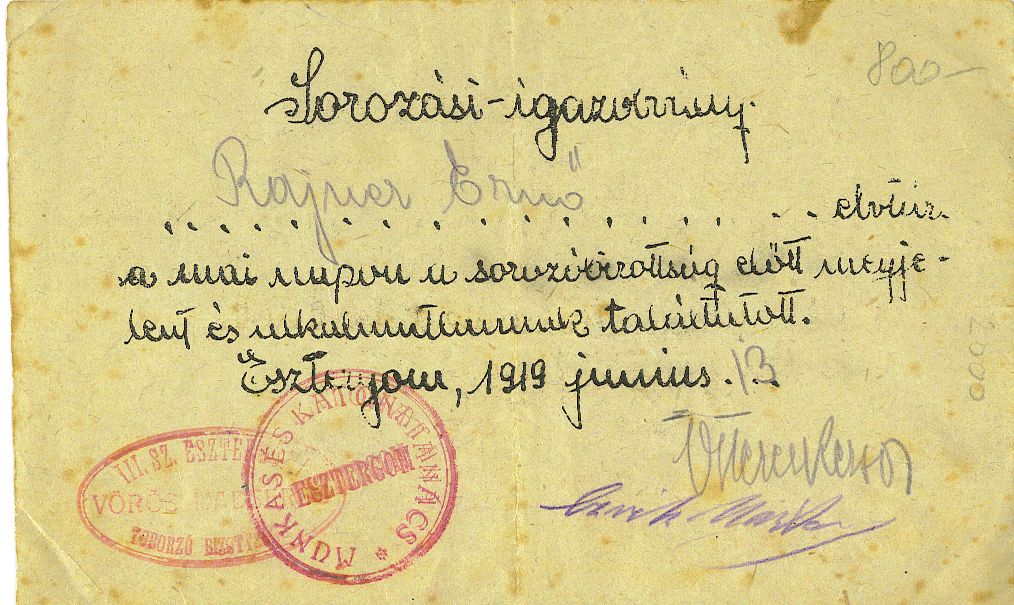 800-
Sorozási-igazolvány.
Rajner Ernő
. . . . . . . . . . . . . . . . elvtárs.
a mai napon a sorozóbizottság előtt megje-
lent és alkalmatlannak találtatott.
Esztergom, 1919 junius. 13.
III. SZ. ESZTER
VÖRÖS HAD
TOBORZÓ BIZOTT
MUNKÁS ÉS KATONATANÁCS
ESZTERGOM